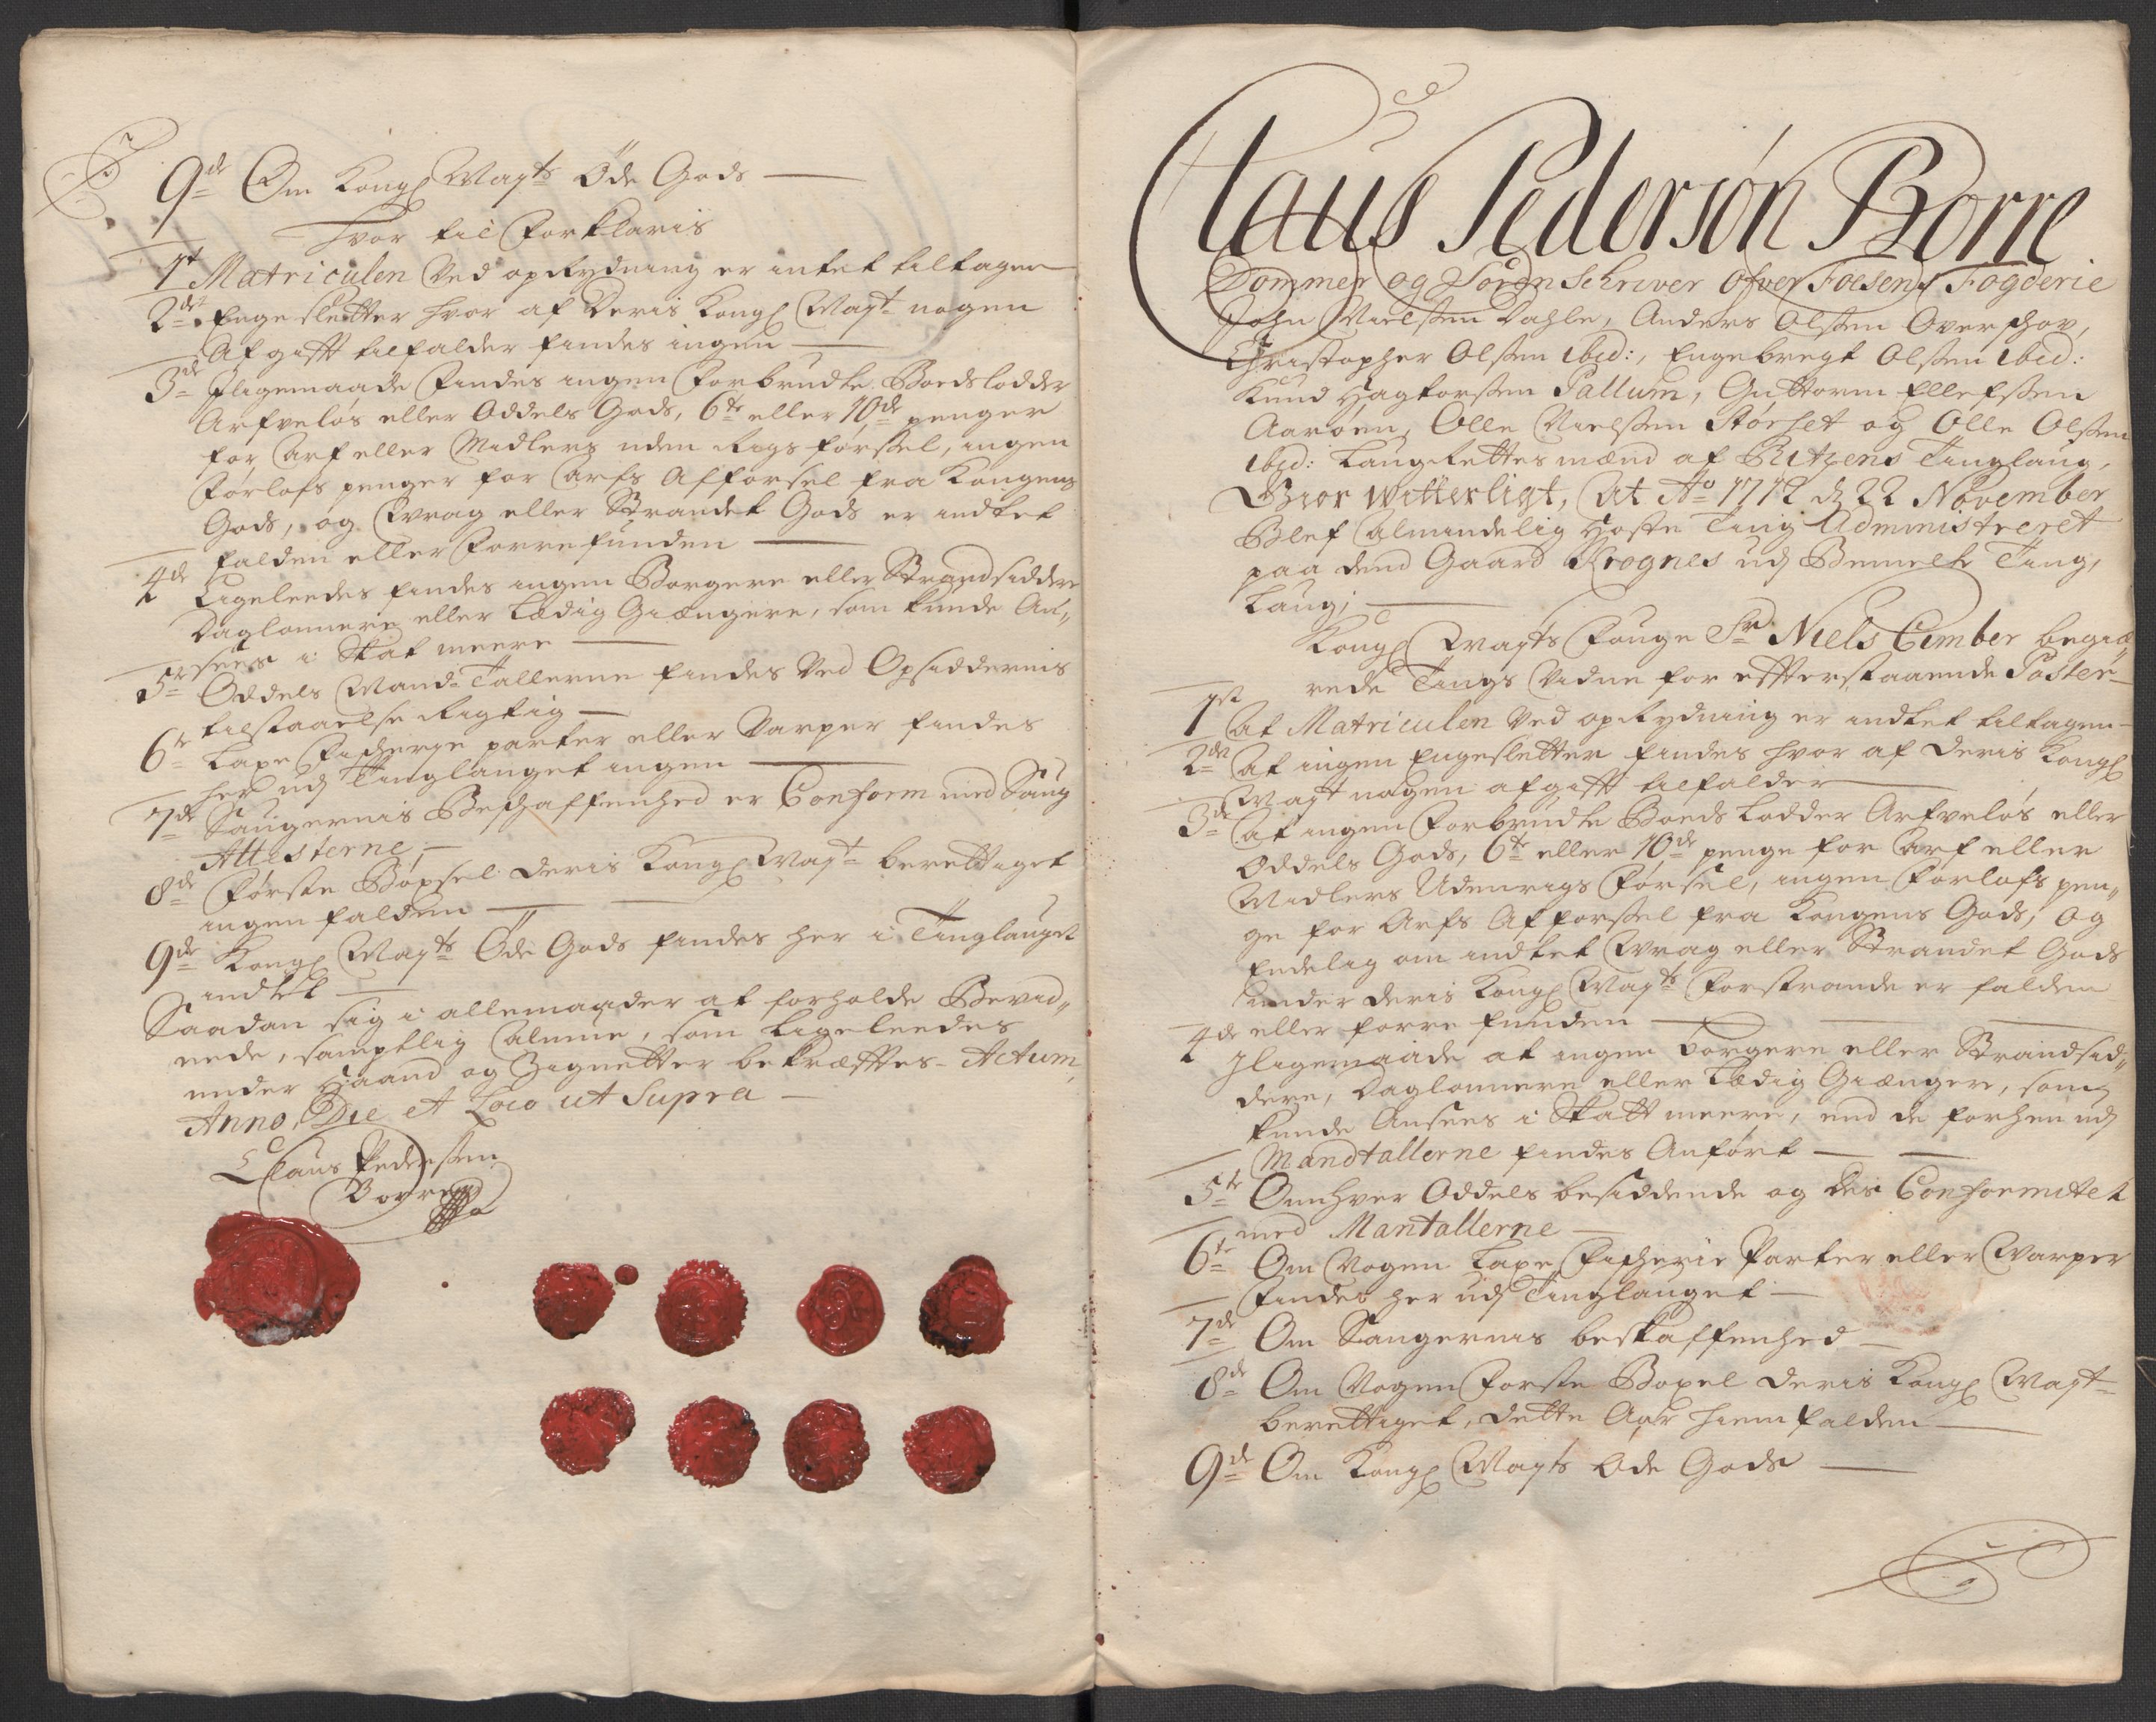 9de Om Kongl Mayts Öde Gods —
hvor til Forklaris
1st Matriculen Ved opRydning er intet tiltagen
2den Enge sletter hvor af Deris Kongl Mayt nogen
Afgifft tilfalder findes ingen —
3de Iligemaade findes ingen Forbrudte Boedslodder
Arfveløs eller Oddels Gods, 6te eller 10de penger
for Arf eller Midlers uden Rigs førssel, ingen
Forlofs penger for Arfs Afførsel fra Kongens
Gods, og Wrag eller Strandet Gods er indtet
falden eller Forrefunden —
4de Ligeleedes findes ingen Borgere eller Strandsiddere
Daglønnere eller Lædig Giængere, som kunde An„
sees i Skat meere —
5te Oddels Mand Tallerne findes Ved Opsiddernis
tilstaaelse Rigtig —
6te Laxe Fischerje parter eller Varper findes
her udj Tinglauget ingen —
7de Saugernis Beschaffenhed er Conform med Saug
Attesterne, —
8de Første Böxsel Deris Kongl Mayt berettiget
ingen falden —
9de Kongl Mayts Öde Gods findes her i Tinglauget
indtet —
Saadan sig i allemaader at forholde Bevid„
nede, samptlig Almue, som Ligeleedes
under Haand og Zignetter bekræfftes - Actum,
Anno, Die et Loco ut Supra —
Claus Pederssen
Borre
Claus Pedersøn Borre
Dommer og Soren Schriver ofver Foesens Fogderie
John Nielssen Dahle, Anders Olssen Overschov,
Christopher Olssen ibid:, Engebregt Olssen ibid:
Knud Hagtorssen Pallum, Guttorm Ellefssen
Aarøen, Olle Nielssen Størset og Olle Olssen
ibid: LaugRettesmænd af Bitzens Tinglaug,
Giør Witterligt, At Ao 1712 d 22 November
Blef Almindelig Høste Ting Administreret
paa dend Gaard Krognes udj Bemelte Ting„
Laug; —
Kongl Mayts Fouge Sr Niels Cimber begiæ„
rede Tings Vidne for effterstaaende Poster —
1st At Matriculen Ved opRydning er indtet tiltagen —
2den At ingen Engesletter findes hvor af Deris Kongl
Mayt nogen afgifft tilfalder —
3de At ingen Forbrudte Boeds Lodder Arfveløs eller
Oddels Gods, 6te eller 10de penge for Arf eller
Midlers Udenrigs Førsel, ingen Forlofs pen„
ge for Arfs Afførssel fra Kongens Gods, og
Endelig om indtet Wrag eller Strandet Gods
under Deris Kongl Mayts Forstrande er falden
eller forre funden —
4de Iligemaade at ingen Borgere eller Strandsid„
dere, Daglønnere eller Lædig Giængere, som
kunde Ansees i Skatt meere, end de forhen udj
Mandtallerne findes Anført —
5te Om hver Oddels besiddende og des Conformitet
med Mantallerne —
6te Om Nogen Laxe Fischerie Parter eller Warper
findes her udj Tinglauget —
7de Om Saugernis beskaffenhed —
8de Om Nogen Første Böxel Deris Kongl Mayt
berettiget, dette Aar hiemfalden —
9de Om Kongl Mayts Öde Gods —